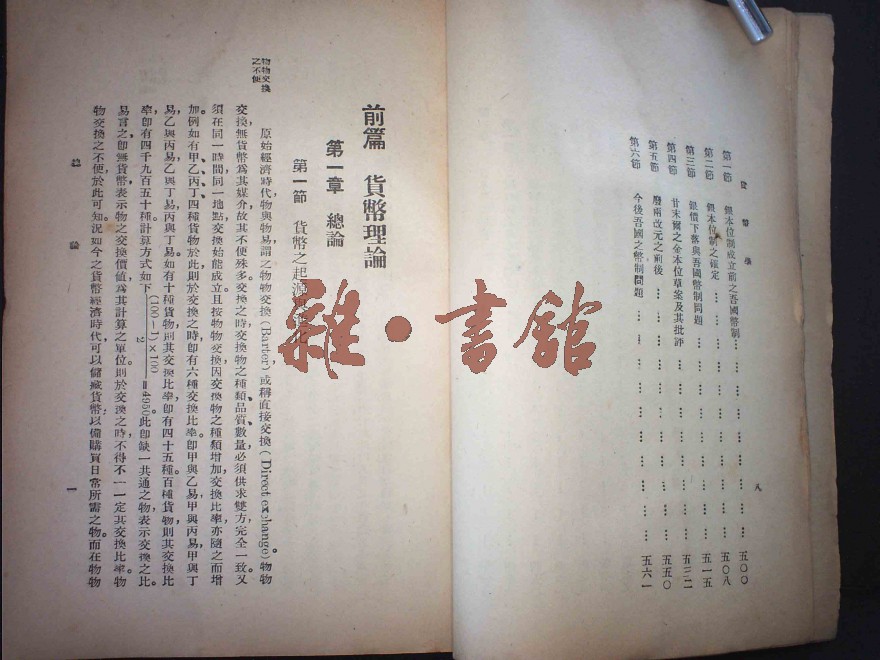 貨幣學
第一節 銀本位制成立前之吾國幣制……五〇〇
第二節 銀本位制之確定……五〇八
第三節 銀價下落與吾國幣制問題……五一五
第四節 甘末爾之金本位草案及其批評……五三二
第五節 廢兩改元之前後……五五〇
第六節 今後吾國之幣制問題……五六一
八
雜·書館
前篇 貨幣理論
第一章 總論
第一節 貨幣之起源
物物交換
之不便
原始經濟時代,物與物易,謂之物物交換(Barter)或稱直接交換(Direct exchange)。物物
交換,無貨幣爲其媒介,故其不便殊多。交換之時,交換物之種類、品質、數量,必須供求雙方完全一致,又
須在同一時間,同一地點,交換始能成立。且按物物交換,因交換物之種類增加,交換比率,亦隨之而增
加。例如有甲、乙、丙、丁四種貨物於此,則於交換之時,卽有六種交換比率。卽甲與乙易,甲與丙易,甲與丁
易,乙與丙易,乙與丁易,丙與丁易。如有十種貨物,則其交換比率,卽有四十五種。百種貨物,則其交換比
率,卽有四千九百五十種。計算方式如下 (100-1)×100/2=4950。此卽缺一共通之物,表示交換之比
易言之,卽無貨幣,表示物之交換價値,爲其計算之單位。則於交換之時,不得不一一定其交換比率。物
物交換之不便,於此可知。況如今之貨幣經濟時代,可以儲藏貨幣,以備購買日常所需之物。而在物物
總論
一